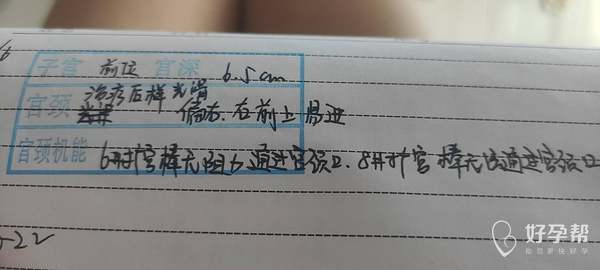 子宫 前位 宫深 6.5cm
宫颈 治疗后样光滑
偏右 右前上 易进
宫颈机能 6号扩宫棒无阻力通过宫颈口. 8号扩宫棒无法通过宫颈口
-22
好孕帮